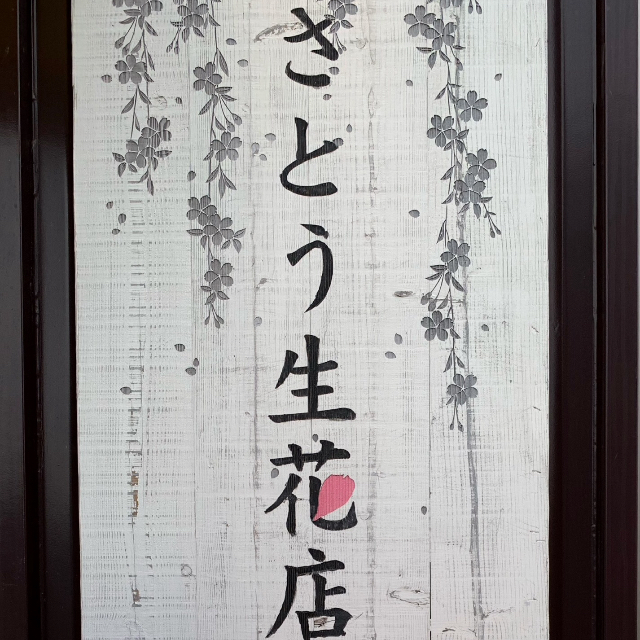 さとう生花店